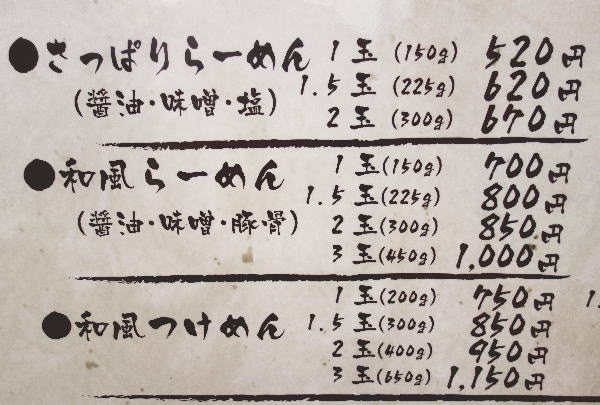 ●さっぱりらーめん 1玉 (150g) 520円
1.5玉 (225g) 620円
(醤油・味噌・塩)
2玉 (300g) 670円
●和風らーめん 1玉 (150g) 700円
1.5玉 (225g) 800円
(醤油・味噌・豚骨) 2玉 (300g) 850円
3玉 (450g) 1,000円
●和風つけめん 1玉 (200g) 750円
1.5玉 (300g) 850円
2玉 (400g) 950円
3玉 (650g) 1,150円